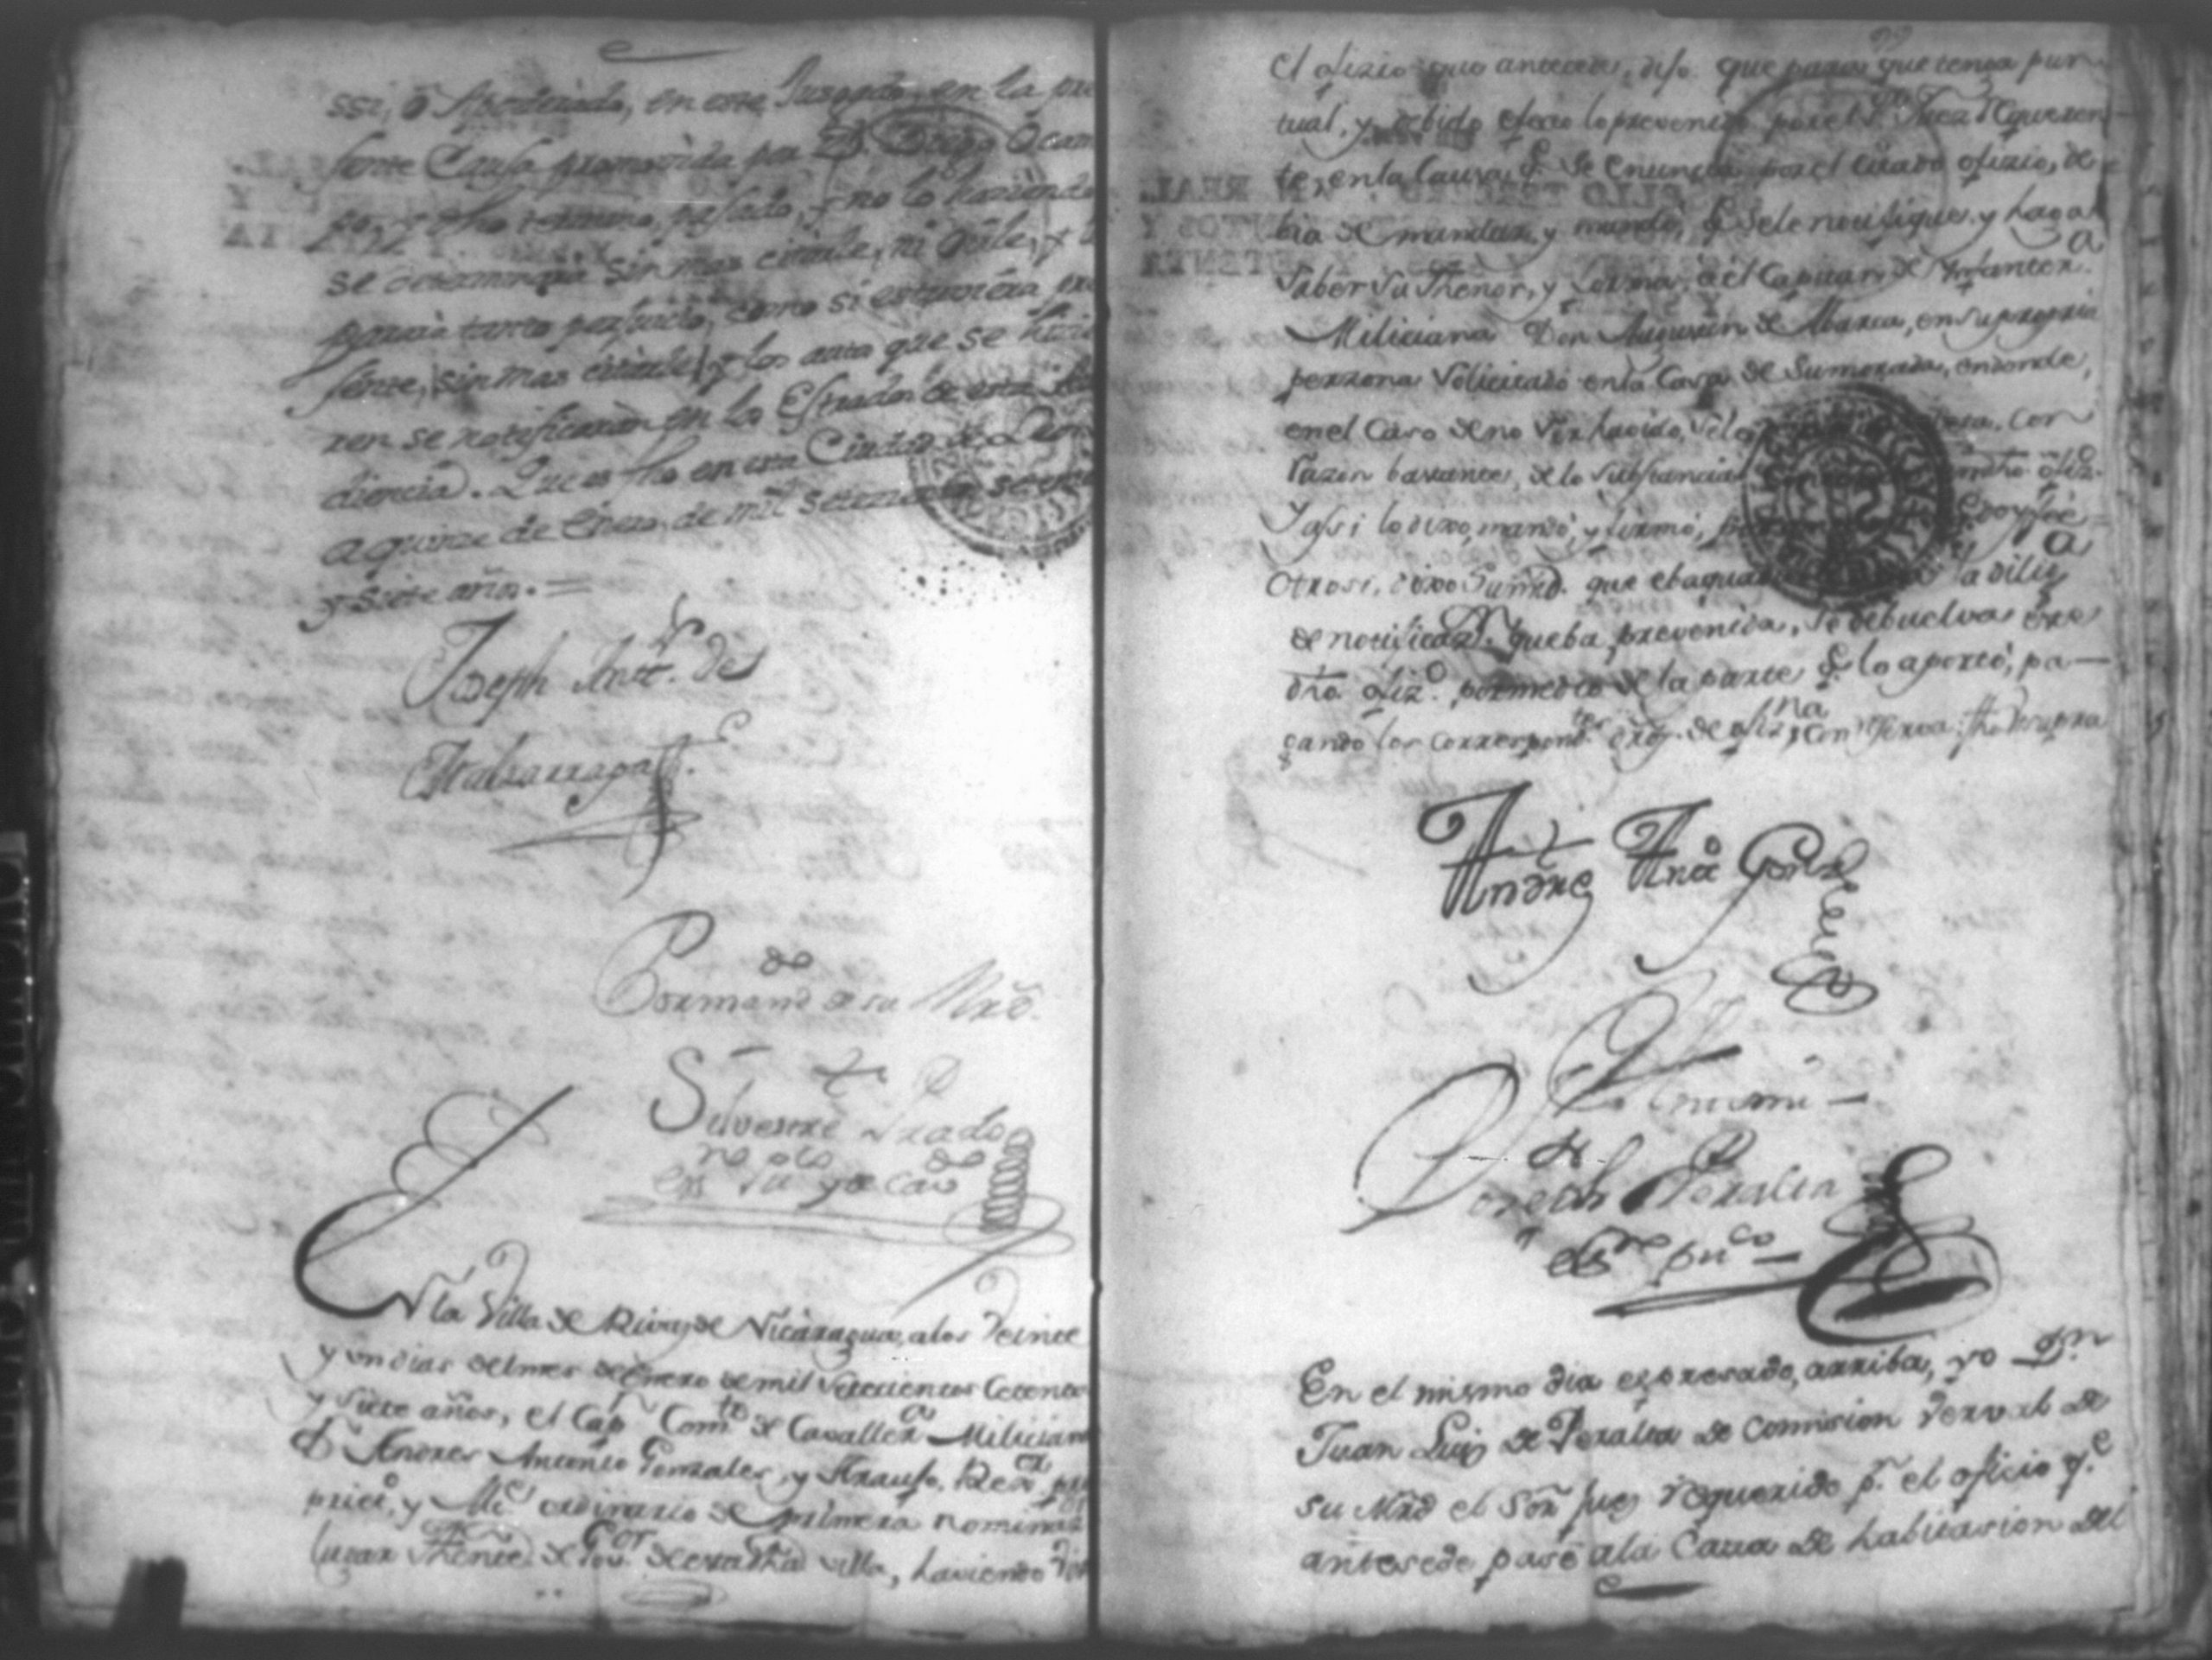 ssi, ô Apoderado, en este Juzgado, en la pre
sente Causa promovida por Dn. Diego Ocam
po, y dho termino pasado, y no lo haciendo
se determinara sin mas citarle, ni oirle, y le
parará tanto perjuicio, como si estuviera pre
sente, sin mas citarle, y los autos que se hizie
ren se notificaran en los Estrados de esta Au
diencia. Que es fho en esta Ciudad de Leon
a quinze de Enero de mil setecientos setenta
y siete años. =
Joseph Antto. de
Por mando de su Mrd.
Silvestre Prado
En la Villa de Rivas de Nicaragua, a los Veinte
y un dias del mes de Enero de mil Setecientos Cetenta
y siete años, el Capn. Comte. de Cavalleria Miliciana
Dn. Andres Antonio Gonzales, y Araujo, Rexor.
y Alce. ordinario de primera nomina
lugar Thente. de Govor. de esta dha villa, haviendo
El ofizio que antecede, dijo que para que tenga pun
tual, y debido efecto lo prevenido por el Sr. Juez Requeren
te, en la Causa, q. se enuncia por el citado ofizio, de
bia de mandar, y mando, q. se le notifique, y haga
saber su thenor, y forma, a el Capitan de Ynfanteria
Miliciana Don Augustin de Abarca, en su propria
perzona Solicitado en la Casa de Su morada, en donde,
en el Caso de no Ser havido, con
razon bastante, de lo Substancial dho ofizo.
Y assi lo dixo, mandó, y firmó, Doy fee =
Otrosi, dixo Su mrd. que la dilig
de notificazn. que ba prevenida, se debuelva
dho ofizo. por medio de la parte q. lo aportó, pa—
gando los correspondtes. dros. de ofizna
Andres Anto Gonzales
Ante mi —
Joseph Peralta
Essno puco —
En el mismo dia expresado, arriba, yo Dn
Juan Luis de Peralta de Comision Verval de
su Mrd el Sor. Juez requerido pr. el oficio qe
antesede pasé a la Casa de habitasion del